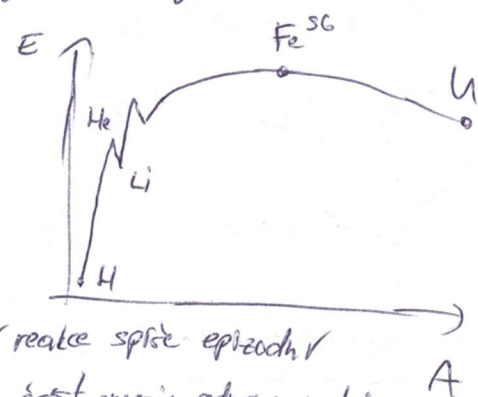 E
Fe⁵⁶
U
He
Li
H
reakce spíše epizodní
A